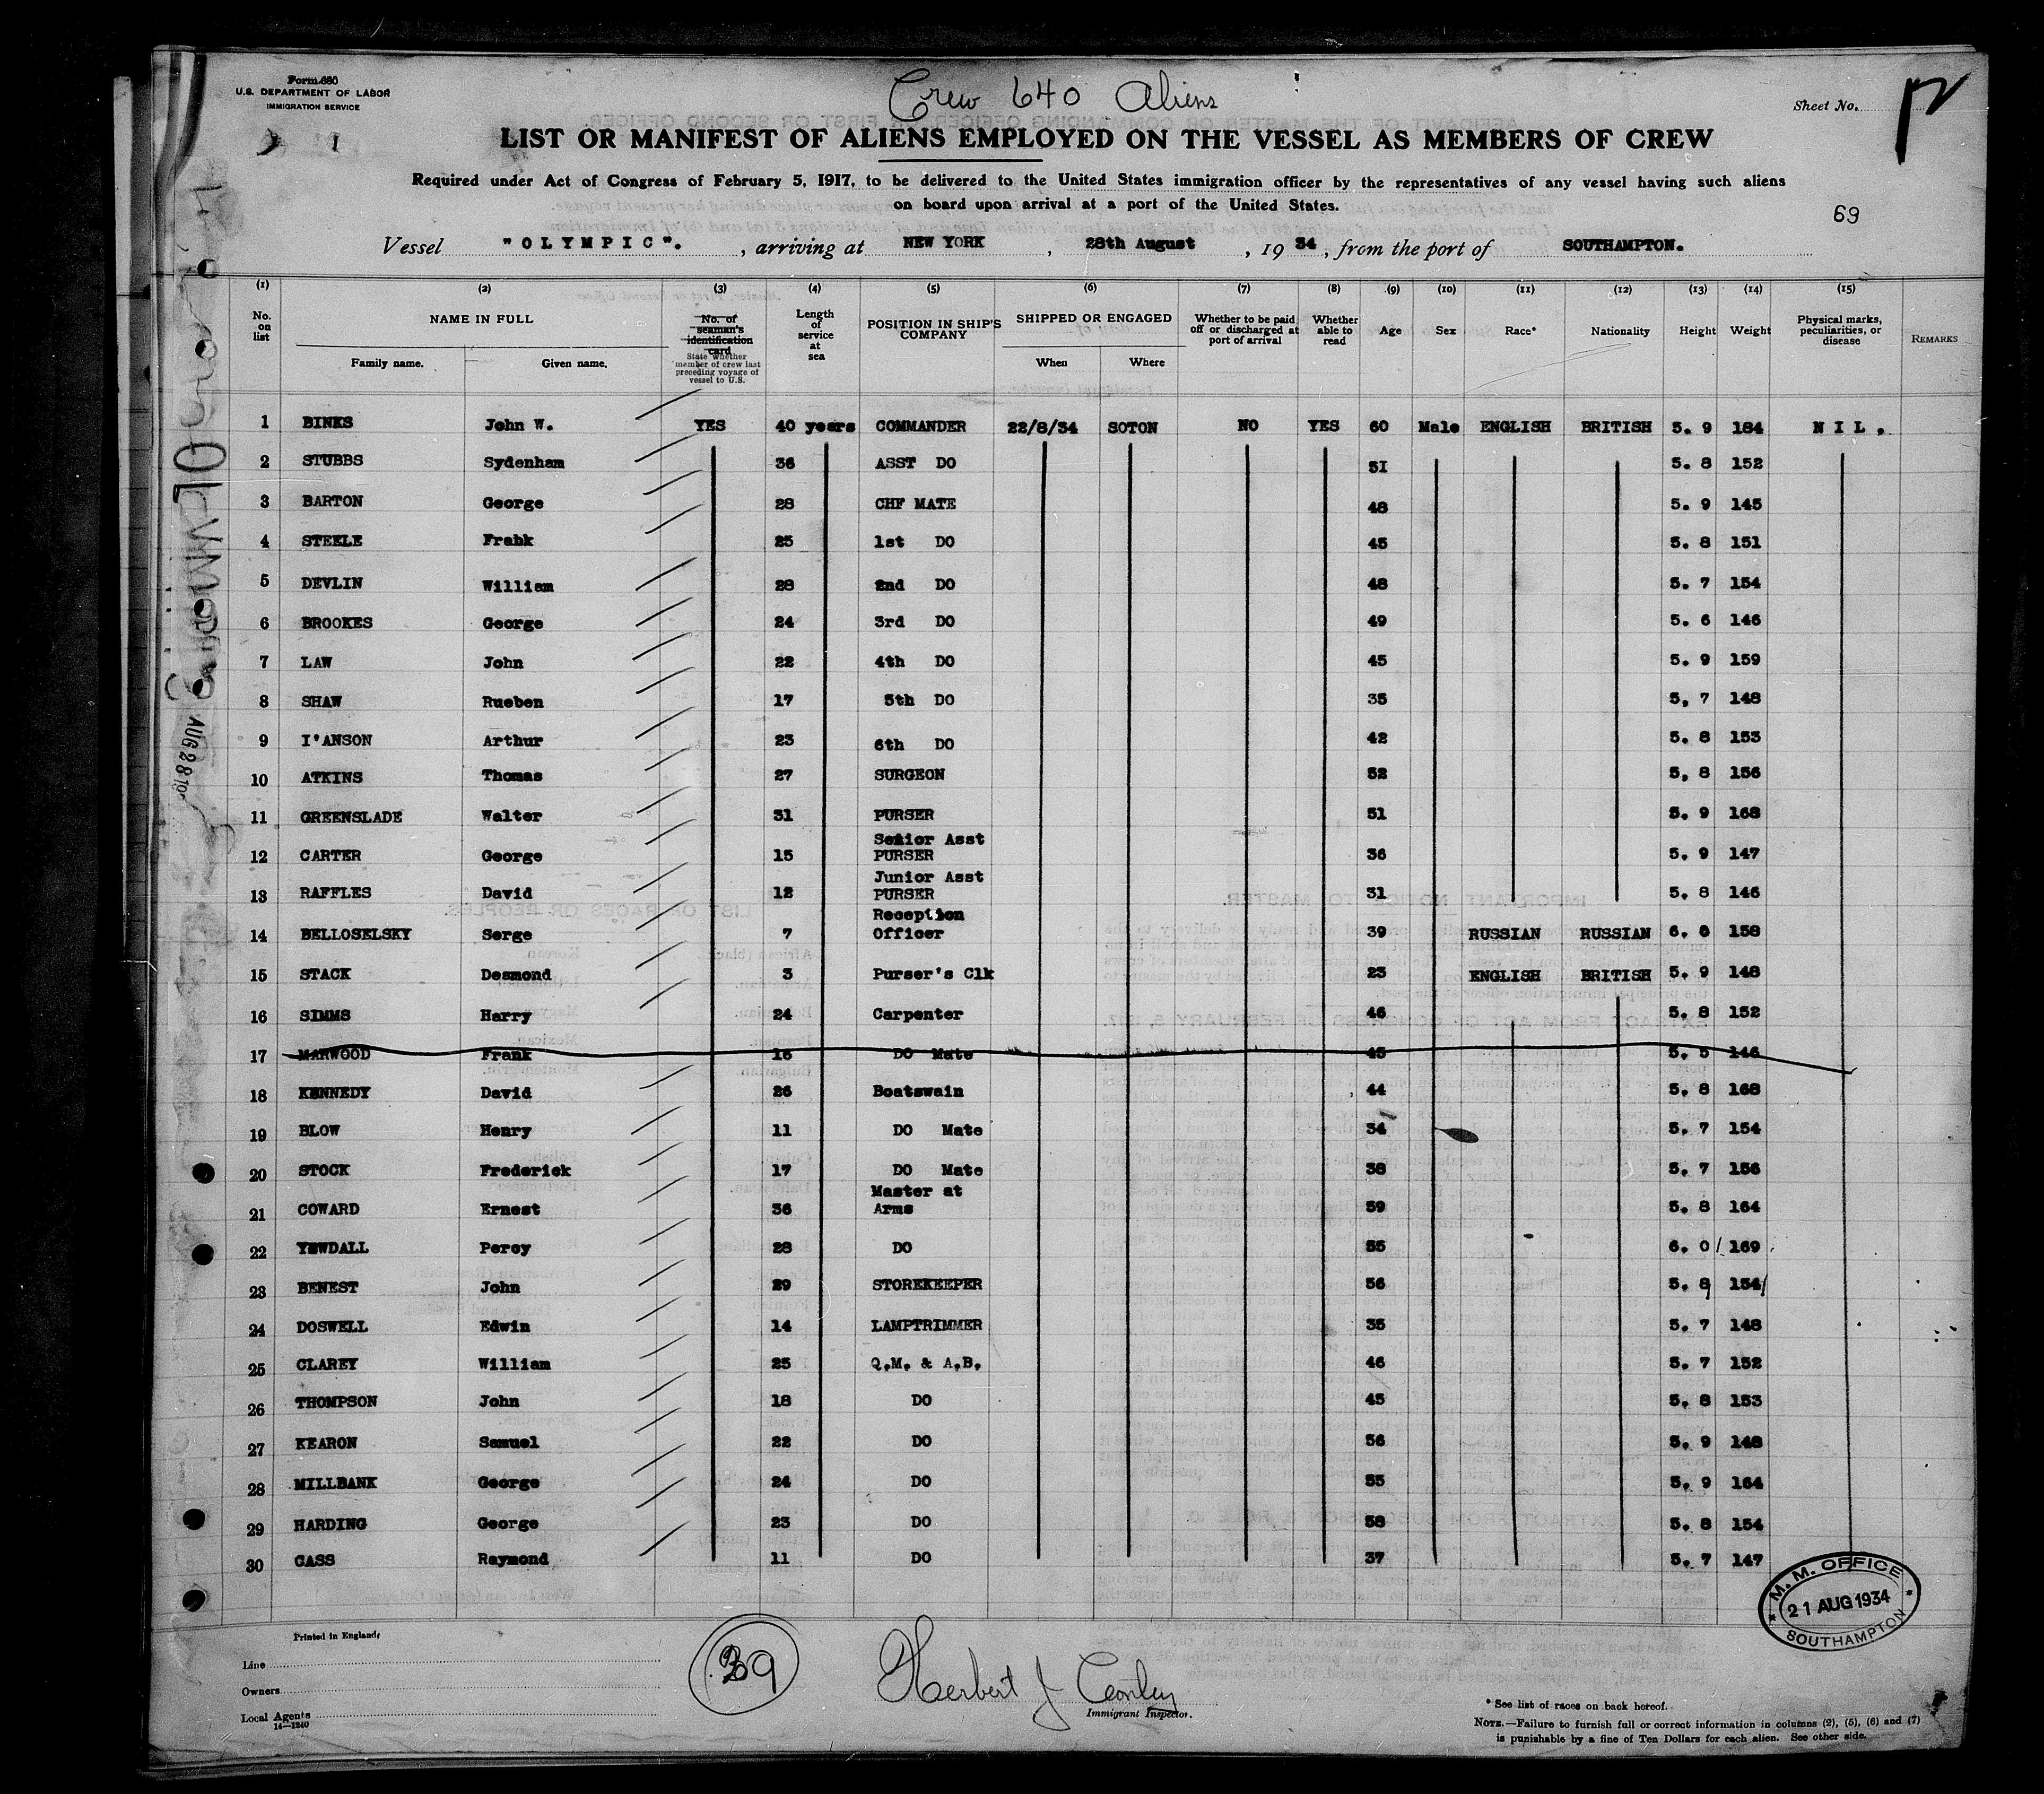 Form 680
U.S. DEPARTMENT OF LABOR
IMMIGRATION SERVICE
1
Crew 640 Aliens
Sheet No.
LIST OR MANIFEST OF ALIENS EMPLOYED ON THE VESSEL AS MEMBERS OF CREW
Required under Act of Congress of February 5, 1917, to be delivered to the United States immigration officer by the representatives of any vessel having such aliens
on board upon arrival at a port of the United States.
69
Vessel "OLYMPIC". , arriving at NEW YORK , 28th August , 19 34 , from the port of SOUTHAMPTON.
(1) (2) (3) (4) (5) (6) (7) (8) (9) (10) (11) (12) (13) (14) (15)
No. on list NAME IN FULL Family name. Given name. No. of seaman's identification card State whether member of crew last preceding voyage of vessel to U.S. Length of service at sea POSITION IN SHIP'S COMPANY SHIPPED OR ENGAGED When Where Whether to be paid off or discharged at port of arrival Whether able to read Age Sex Race* Nationality Height Weight Physical marks, peculiarities, or disease REMARKS
1 BINKS John W. YES 40 years COMMANDER 22/8/34 SOTON NO YES 60 Male ENGLISH BRITISH 5. 9 184 NIL.
2 STUBBS Sydenham 36 ASST DO 51 5. 8 152
3 BARTON George 28 CHF MATE 48 5. 9 145
4 STEELE Frabk 25 1st DO 45 5. 8 151
5 DEVLIN William 28 2nd DO 48 5. 7 154
6 BROOKES George 24 3rd DO 49 5. 6 146
7 LAW John 22 4th DO 45 5. 9 159
8 SHAW Rueben 17 5th DO 35 5, 7 148
9 I'ANSON Arthur 23 6th DO 42 5. 8 153
10 ATKINS Thomas 27 SURGEON 52 5, 8 156
11 GREENSLADE Walter 31 PURSER 51 5. 9 168
12 CARTER George 15 Senior Asst PURSER 36 5. 9 147
13 RAFFLES David 12 Junior Asst PURSER 31 5. 8 146
14 BELLOSELSKY Serge 7 Reception Officer 39 RUSSIAN RUSSIAN 6. 0 158
15 STACK Desmond 3 Purser's Clk 23 ENGLISH BRITISH 5. 9 148
16 SIMMS Harry 24 Carpenter 46 5. 8 152
17 MARWOOD Frank 16 DO Mate 45 5. 5 146
18 KENNEDY David 26 Boatswain 44 5. 8 168
19 BLOW Henry 11 DO Mate 34 5. 7 154
20 STOCK Frederick 17 DO Mate 38 5. 7 156
21 COWARD Ernest 36 Master at Arms 59 5. 8 164
22 YEWDALL Percy 28 DO 55 6. 0 169
23 BENEST John 29 STOREKEEPER 56 5. 8 154
24 DOSWELL Edwin 14 LAMPTRIMMER 35 5. 7 148
25 CLAREY William 25 Q.M. & A.B. 46 5. 7 152
26 THOMPSON John 18 DO 45 5. 8 153
27 KEARON Samuel 22 DO 56 5. 9 148
28 MILLBANK George 24 DO 55 5. 9 164
29 HARDING George 23 DO 58 5. 8 154
30 CASS Raymond 11 DO 37 5. 7 147
M. M. OFFICE
21 AUG 1934
SOUTHAMPTON
Printed in England
Line
Owners
Local Agents
14—1240
39
Herbert J Conley
Immigrant Inspector.
* See list of races on back hereof.
NOTE.—Failure to furnish full or correct information in columns (2), (5), (6) and (7)
is punishable by a fine of Ten Dollars for each alien. See other side.
OLYMPIC
AUG 28